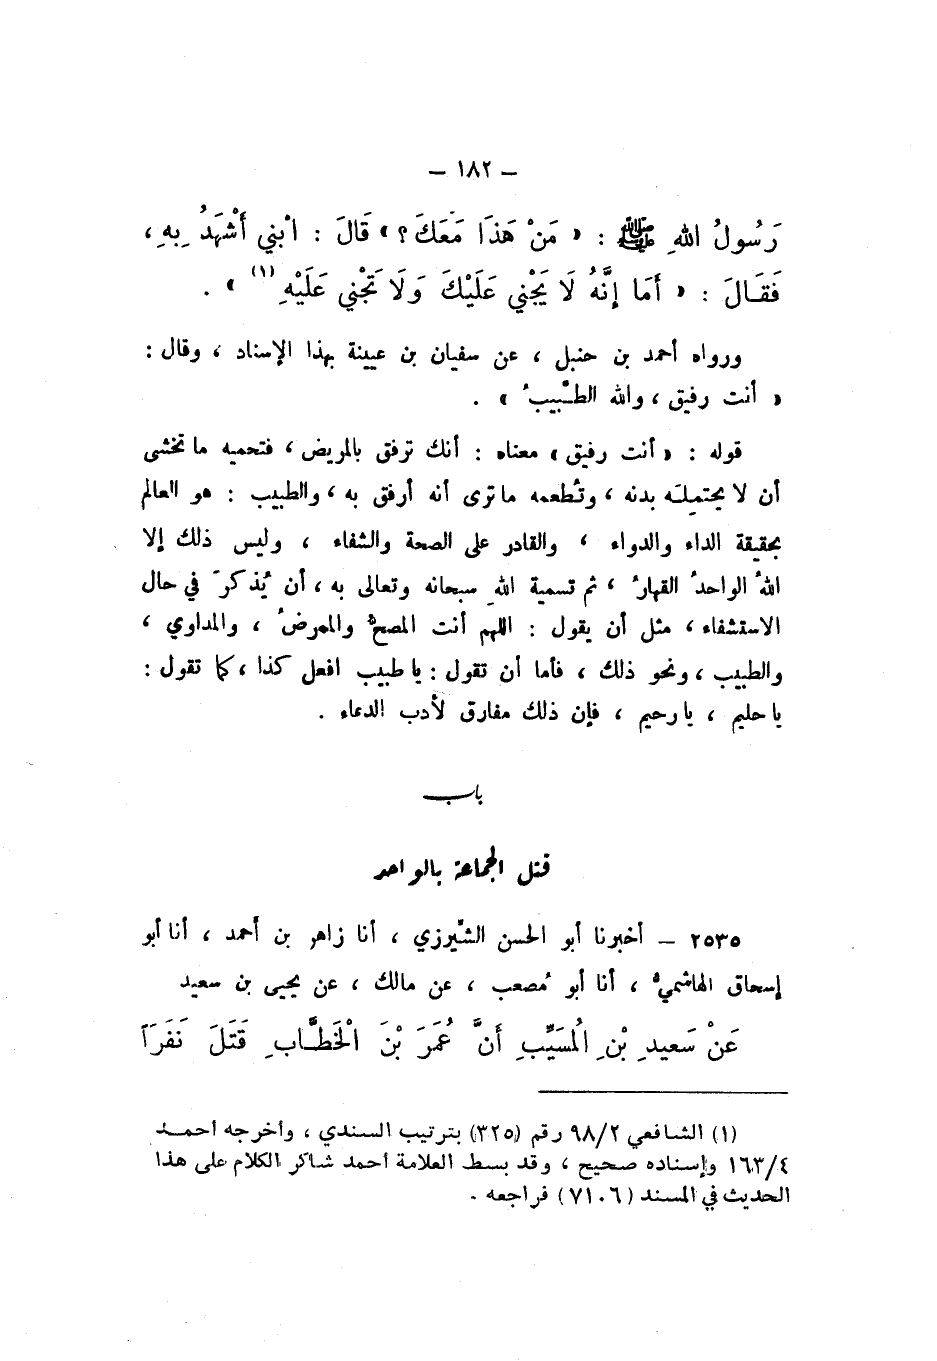 – ١٨٢ –
رَسُولُ اللهِ ﷺ : « مَنْ هَذَا مَعَكَ ؟ » قَالَ : ابْني أَشْهَدُ بِهِ ،
فَقَالَ : « أَمَا إِنَّهُ لَا يَجْنِي عَلَيْكَ وَلَا تَجْنِي عَلَيْهِ (١) » .
ورواه أحمد بن حنبل ، عن سفيان بن عيينة بهذا الإسناد ، وقال :
« أنت رفيق ، والله الطَّبيبُ » .
قوله : « أنت رفيق » معناه : أنك ترفق بالمريض ، فتحميه ما تخشى
أن لا يحتملَه بدنه ، وتُطعمه ما ترى أنه أرفق به ، والطبيب : هو العالم
بحقيقة الداء والدواء ، والقادر على الصحة والشفاء ، وليس ذلك إلا
اللهُ الواحدُ القهارُ ، ثم تسمية اللهِ سبحانه وتعالى به ، أن يُذكرَ في حال
الاستشفاء ، مثل أن يقول : اللهم أنت المصحُّ والممرضُ ، والمداوي ،
والطبيب ، ونحو ذلك ، فأما أن تقول : يا طبيب افعل كذا ، كما تقول :
يا حليم ، يا رحيم ، فإن ذلك مفارق لأدب الدعاء .
باب
قتل الجماعة بالواحد
٢٥٣٥ – أخبرنا أبو الحسن الشِّيرزي ، أنا زاهر بن أحمد ، أنا أبو
إسحاق الهاشميُّ ، أنا أبو مُصعب ، عن مالك ، عن يحيى بن سعيد
عَنْ سَعِيدِ بْنِ الْمُسَيِّبِ أَنَّ عُمَرَ بْنَ الْخَطَّابِ قَتَلَ نَفَرَاً
(١) الشافعي ٩٨/٢ رقم (٣٢٥) بترتيب السندي ، وأخرجه أحمد
١٦٣/٤ وإسناده صحيح ، وقد بسط العلامة أحمد شاكر الكلام على هذا
الحديث في المسند (٧١٠٦) فراجعه .